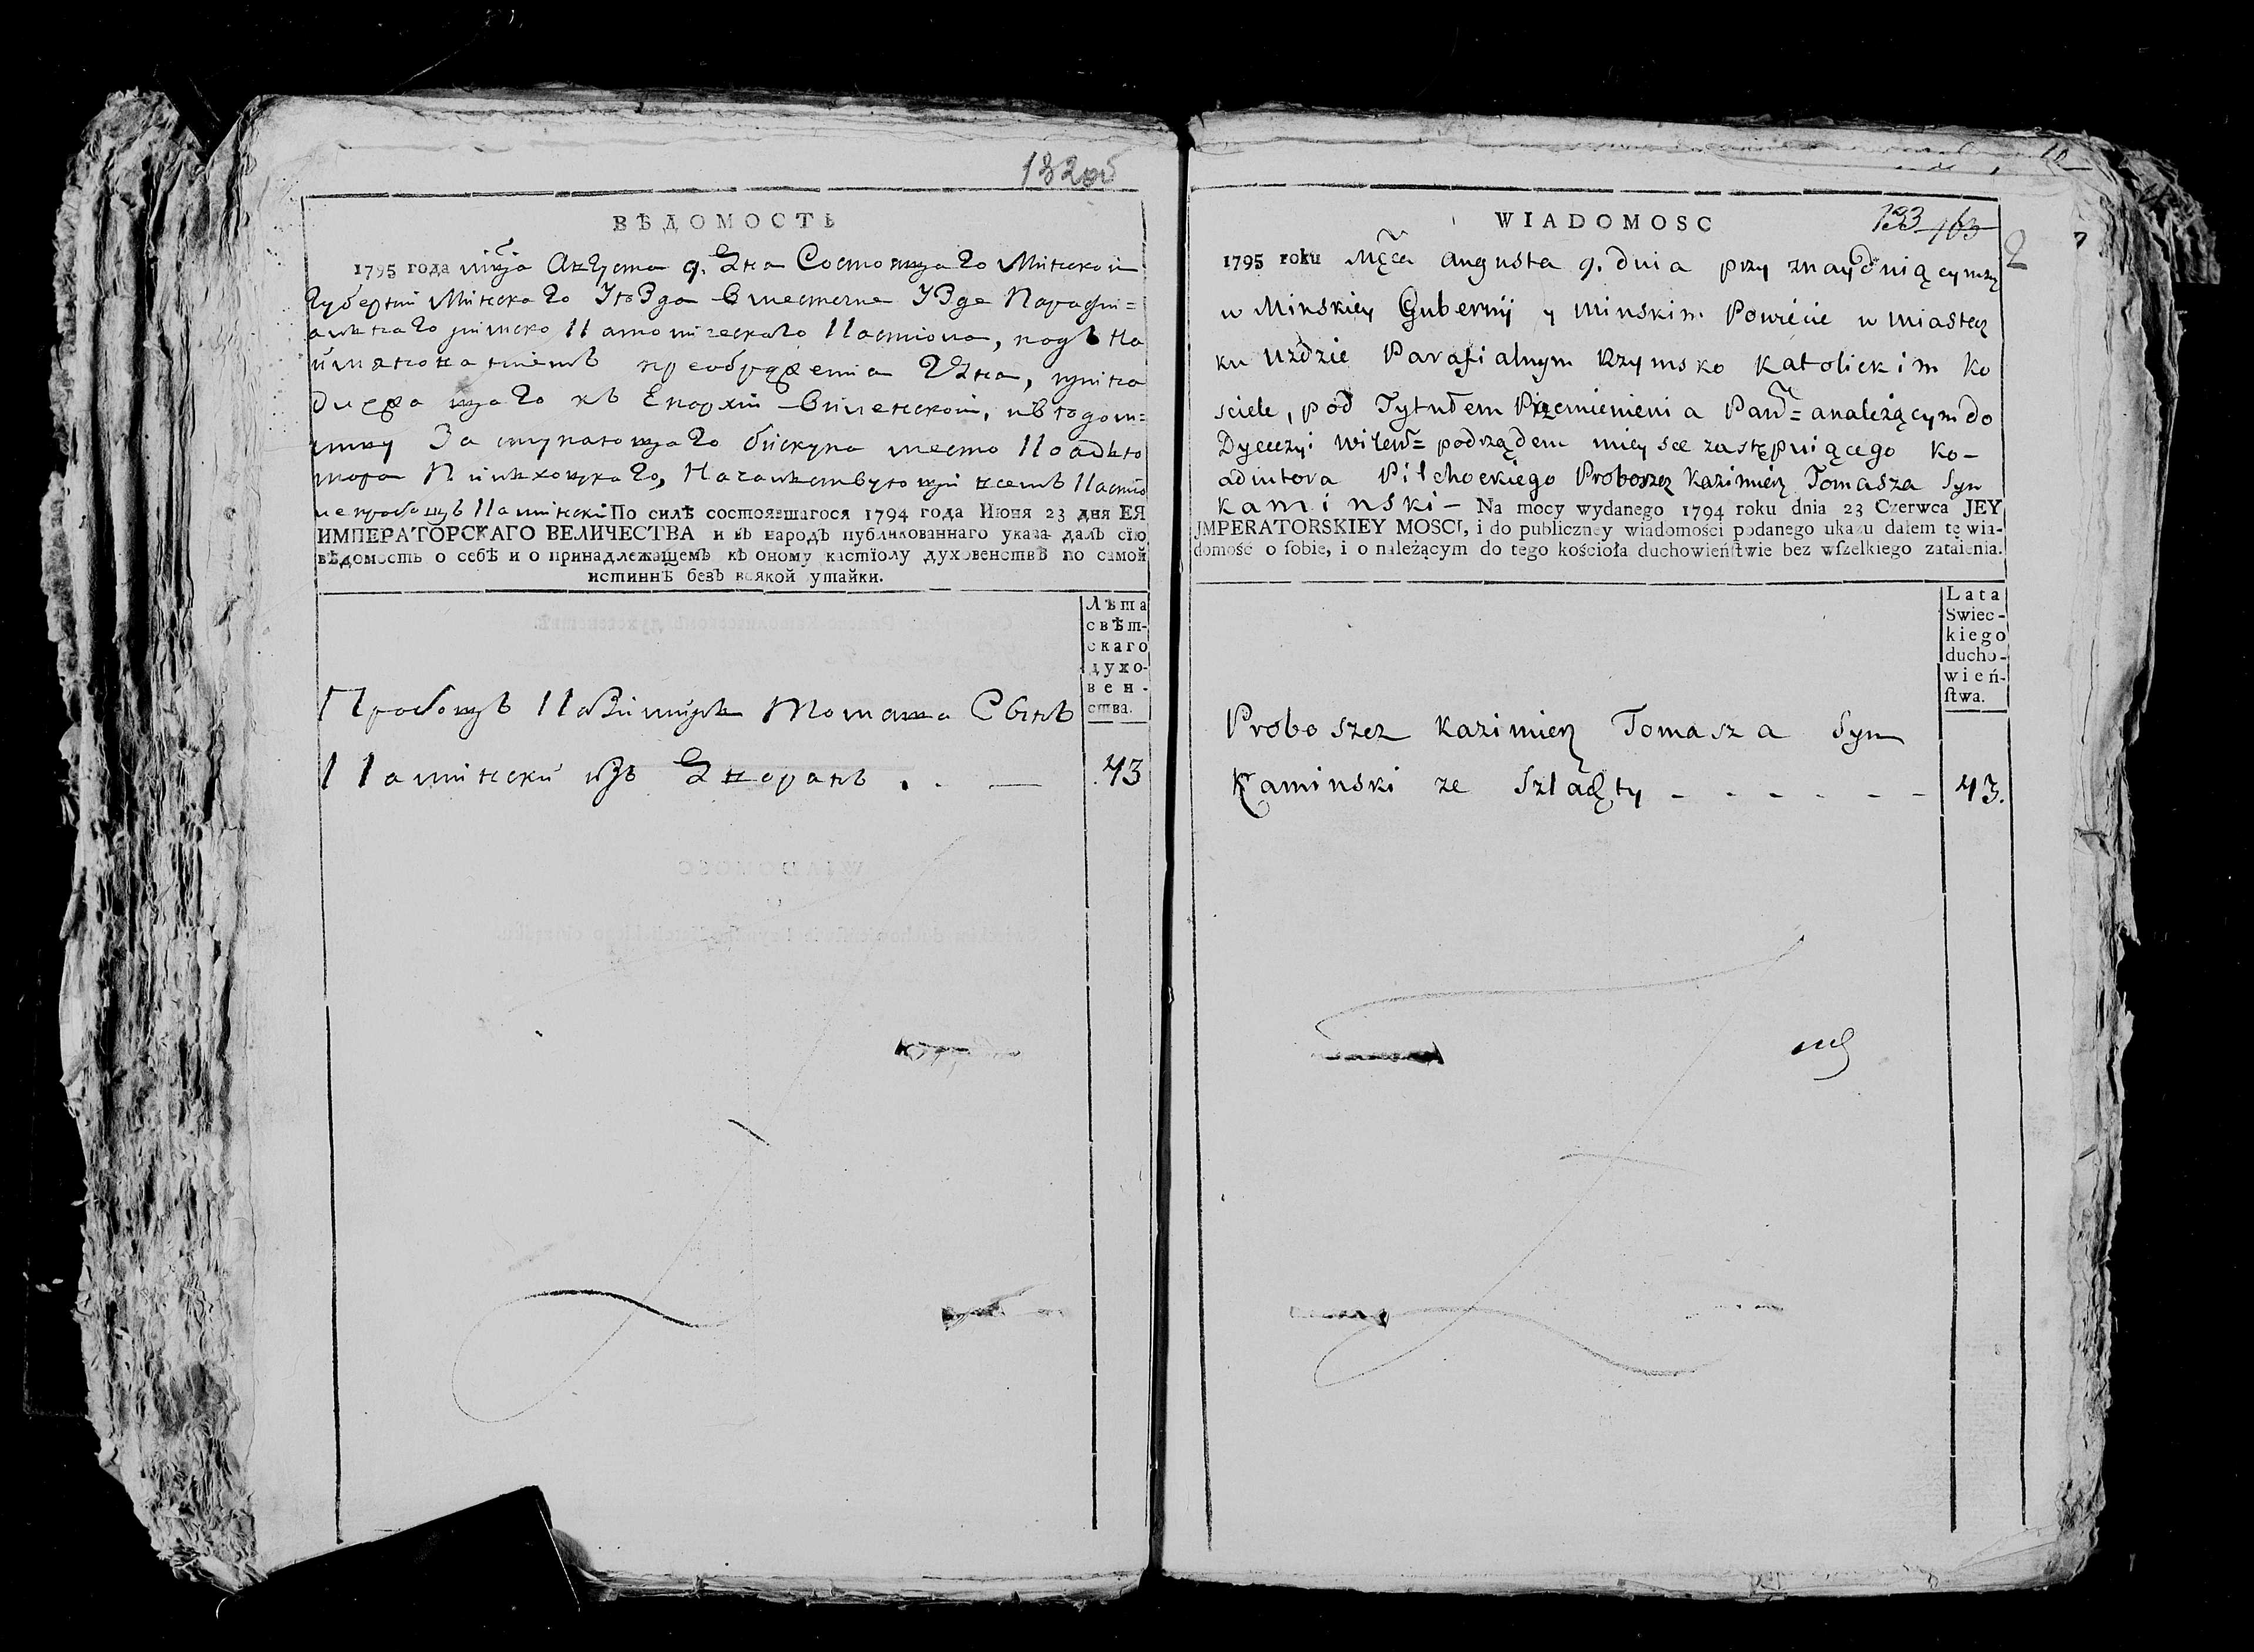 132об
ВѢДОМОСТЬ
1795 года мца Августа 9. дня Состоящаго Минской
Губерніи Минскаго Уѣзда в местечке Узде Парафи=
альнаго римско Католическаго Костіола, подъ на
именованіемъ преображенія Гдня, прина
длежащаго къ Епархіи Виленской,
Заступающаго бискупа место Коадъю
тора Пильховскаго, Началствующій всемъ Костіо
ле пробощъ Каминский По силѣ состоявшагося 1794 года Июня 23 дня ЕЯ
ИМПЕРАТОРСКАГО ВЕЛИЧЕСТВА и въ народъ публикованнаго указа далъ сїю
вѣдомость о себѣ и о принадлежащемъ къ оному кастїолу духовенствѣ по самой
истиннѣ безъ всякой утайки.
Лѣта
свѣт-
скаго
духо-
вен-
ства.
Пробощъ Казимиръ Томаша Сынъ
Каминский изъ Дворянъ . . — 43
133 163
2
WIADOMOSC
1795 roku Mca Augusta 9. dnia przy znayduiącymsz
w Minskiey Gubernij y Minskim Powiecie w Miastecz
ku Uzdzie Parafialnym Rzymsko Katolickim Ko
sciele, pod Tytułem Przemienienia Pan= anależącym do
Dyecezyi Wilen= podrządem mieysce zastępuiącego Ko-
adiutora Pilchockiego Proboszcz Kazimierz Tomasza Syn
Kaminski - Na mocy wydanego 1794 roku dnia 23 Czerwca JEY
JMPERATORSKIEY MOSCI, i do publiczney wiadomości podanego ukazu dałem tę wia-
domość o ſobie, i o należącym do tego kościoła duchowieńſtwie bez wſzelkiego zataienia.
Lata
Swiec-
kiego
ducho-
wień-
ſtwa.
Proboszcz Kazimierz Tomasza Syn
Kaminski ze Szlachty - - - - - - 43.